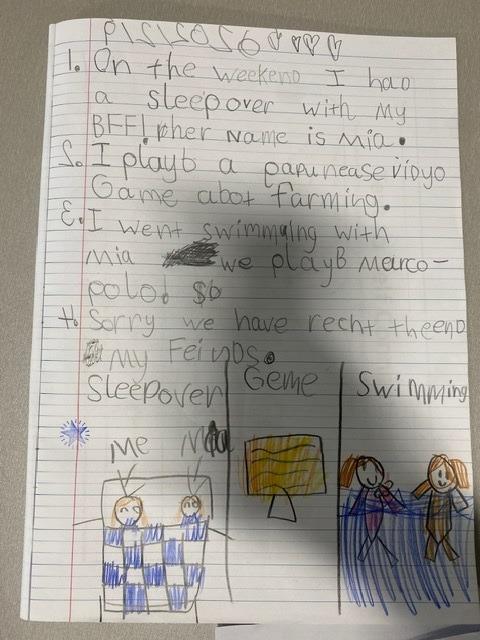 1. On the weekend I had
a sleepover with my
BFF! her name is mia.
2. I playb a papunease vidyo
Game abot farming.
3. I went swimmying with
mia we playB marco-
polo!
4. Sorry we have recht theend
my Feinds.
Sleepover
Geme
Swimming
Me
Mia